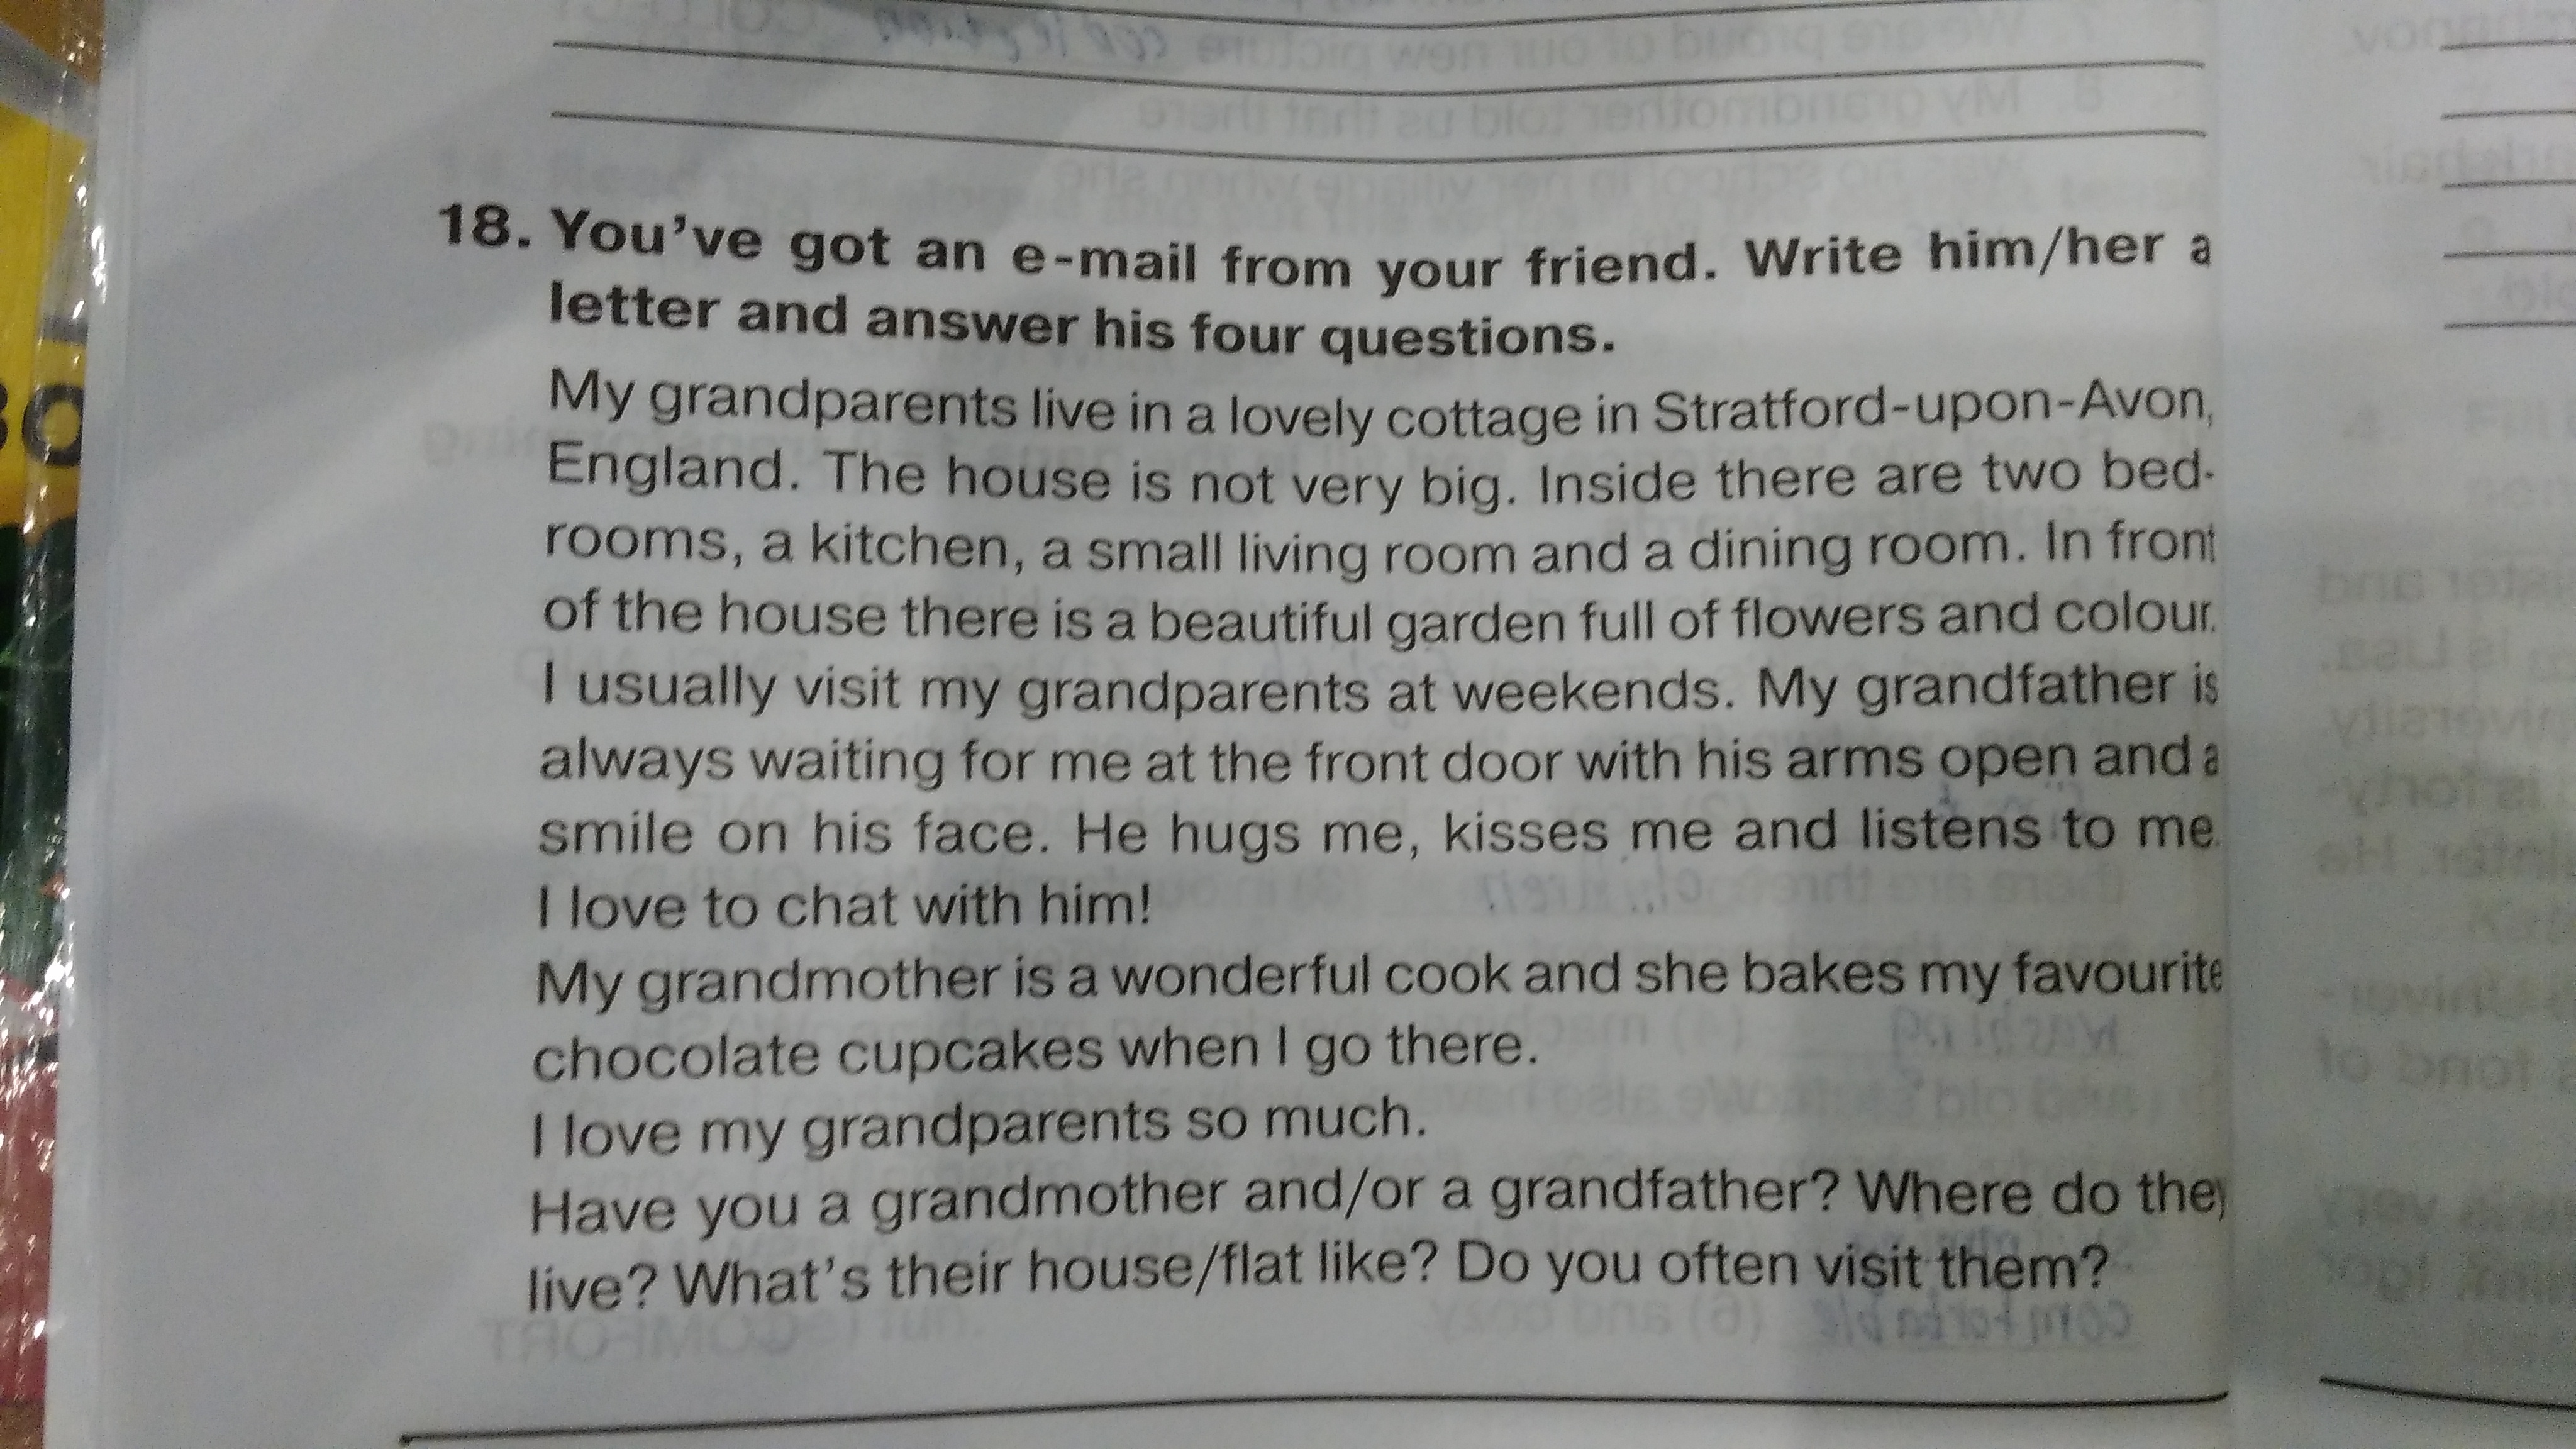 18. You've got an e-mail from your friend. Write him/her a
letter and answer his four questions.
My grandparents live in a lovely cottage in Stratford-upon-Avon,
England. The house is not very big. Inside there are two bed-
rooms, a kitchen, a small living room and a dining room. In front
of the house there is a beautiful garden full of flowers and colour.
I usually visit my grandparents at weekends. My grandfather is
always waiting for me at the front door with his arms open and a
smile on his face. He hugs me, kisses me and listens to me.
I love to chat with him!
My grandmother is a wonderful cook and she bakes my favourite
chocolate cupcakes when I go there.
I love my grandparents so much.
Have you a grandmother and/or a grandfather? Where do they
live? What's their house/flat like? Do you often visit them?